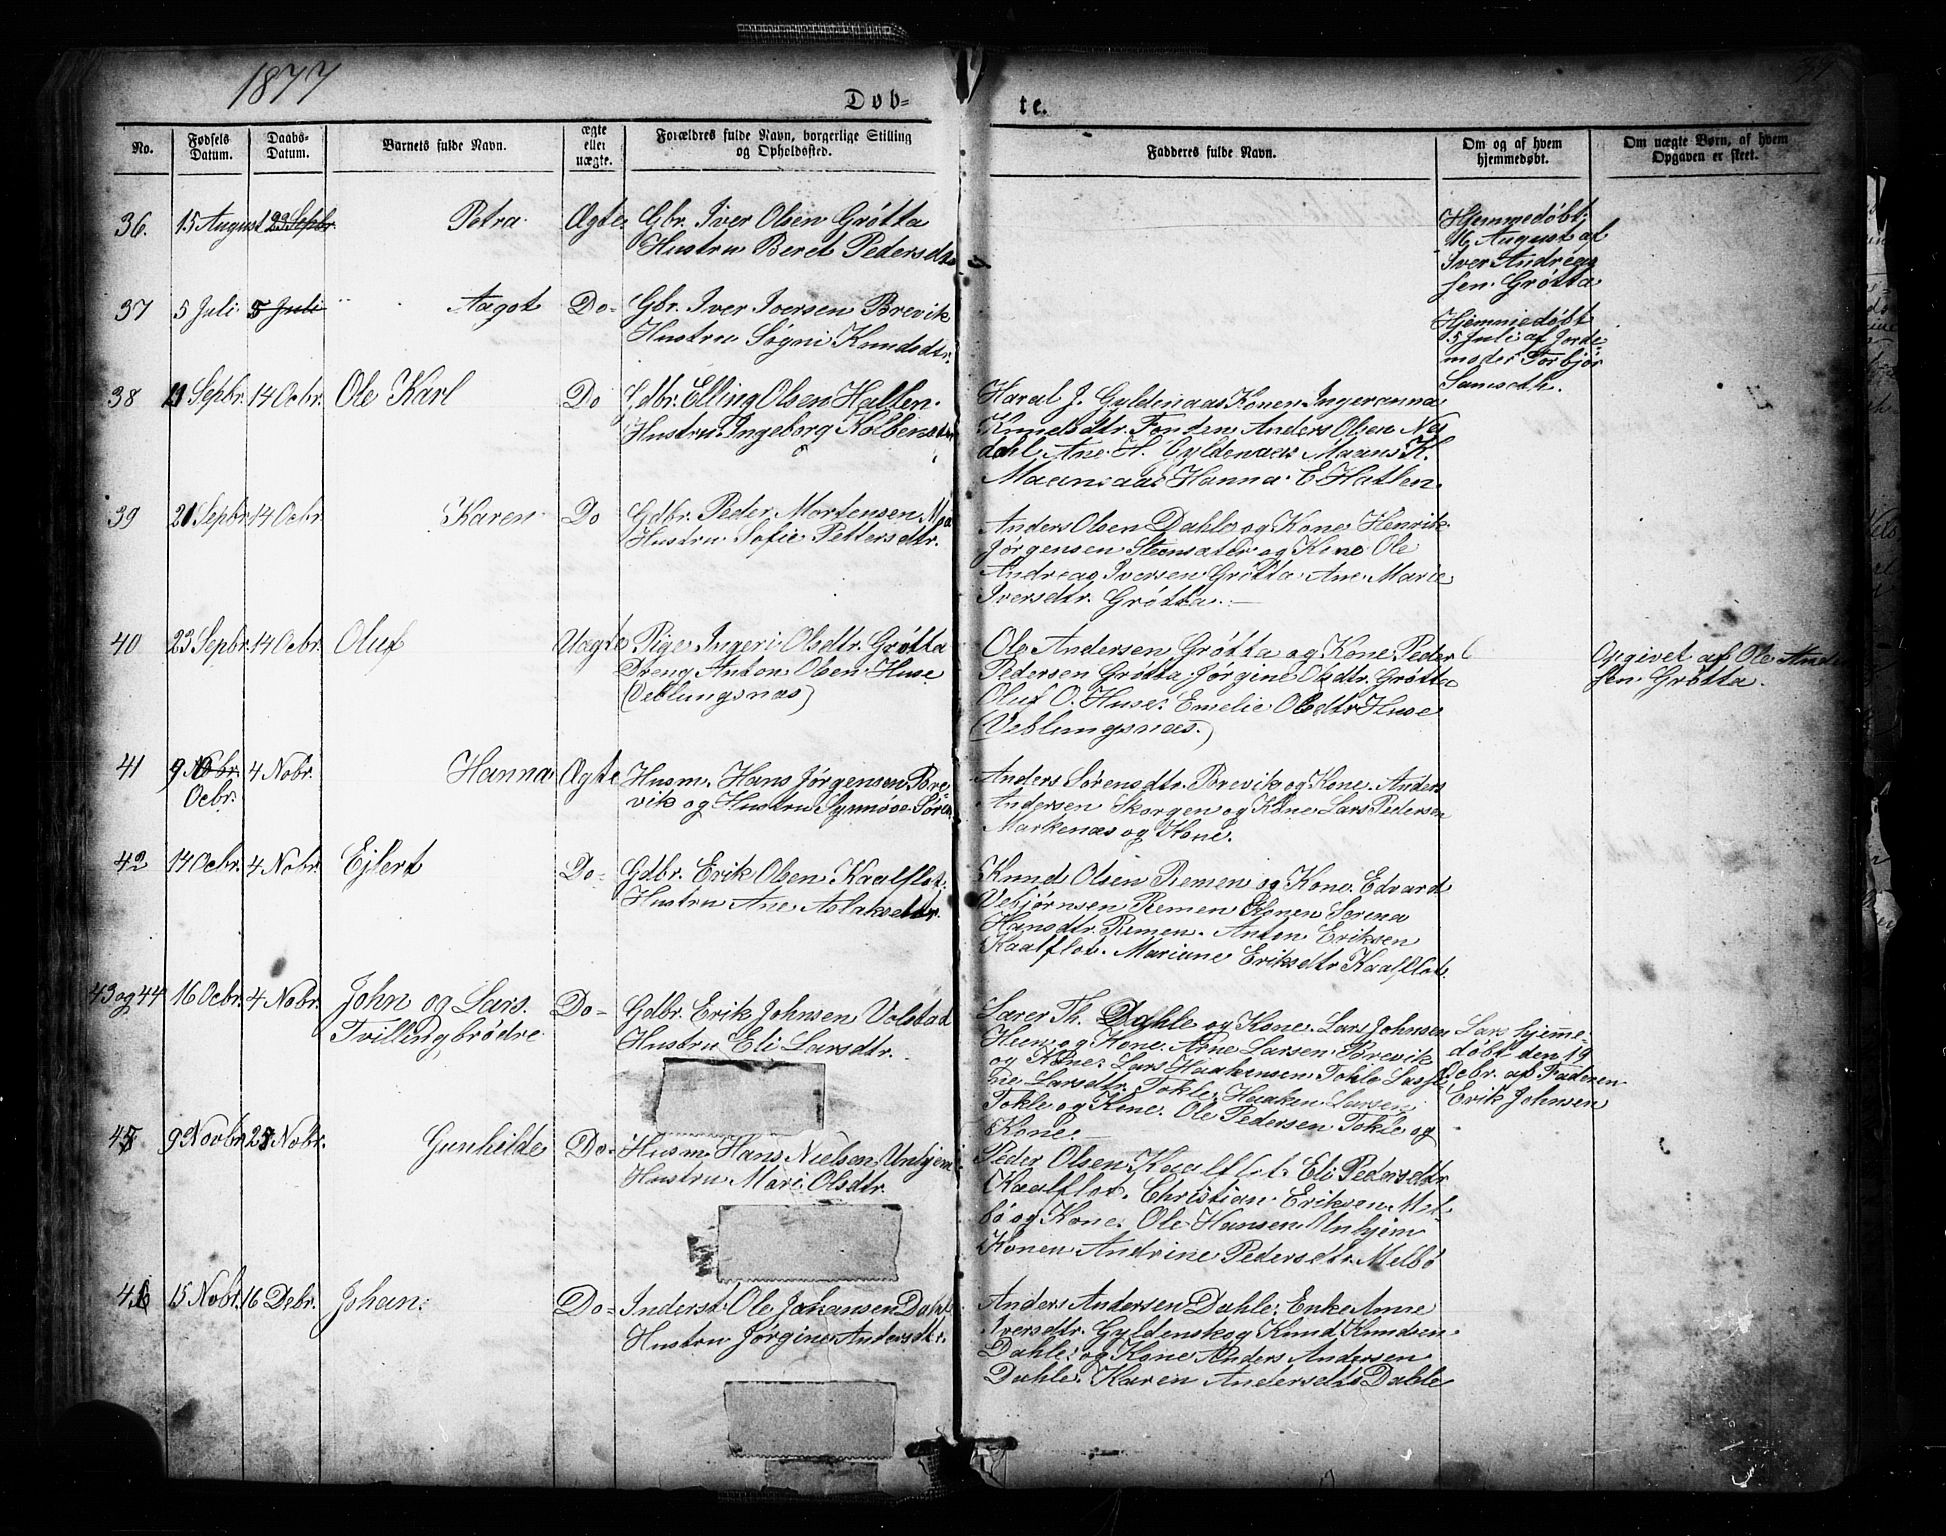 1877
39
Døb-
te.
No.
Fødsels Datum.
Daabs-Datum.
Barnets fulde Navn.
ægte eller uægte.
Forældres fulde Navn, borgerlige Stilling og Opholdssted.
Fadderes fulde Navn.
Om og af hvem hjemmedøbt.
Om uægte Børn, af hvem Opgaven er skeet.
36. 15 August 23 Sepbr. Petra. Ægte. Gbr. Iver Olsen Grøtta
Hustru Beret Pedersdtr
Hjemmedøbt
16 August af
Iver Andreas
sen Grøtta
37 5 Juli. 5 Juli Aagot Do- Gbr. Iver Iversen Brevik
Hustru Søgni Knudsdtr.
Hjemmedøbt
5 Juli af Jorde-
moder Torbjør
38 Sepbr. 14 Ocbr. Ole Karl Do Gdbr. Elling Olsen Hatlen.
Hustru Ingeborg Kolbensdtr
Haral J. Gyldenaas Konen Ingeranna
Knudsdtr. Fonden Anders Olsen Ne
dahl Ane H. Gyldenaas Maans K.
Maanaas Hanna E Hatlen.
39 21 Sepbr 14 Ocbr. Karen Do Gdbr. Peder Mortensen
Hustru Sofie Pettersdtr.
Anders Olsen Dahle og Kone Henrik
Jørgensen Steensæter og Kone Ole
Andreas Iversen Grøtta Ane Marie
Iversdtr. Grøtta.
40 23 Sepbr. 14 Ocbr. Oluf Uægte Pige Ingeri Olsdtr. Grøtta
Dreng Anton Olsen Huse
(Veblungsnæs)
Ole Andersen Grøtta og Kone Peder
Pedersen Grøtta Jørgine Olsdtr. Grøtta
Oluf O. Huse. Emelie Olsdtr Huse
(Veblungsnæs.)
Opgivet af Ole Ander
sen Grøtta.
41 9 Nobr. 4 Nobr. Hanna Ægte Husm. Hans Jørgensen Bre
Ocbr. vik og Hustru Synnøve Søren
Anders Sørensdtr. Brevik og Kone. Anders
Andersen Skorgen og Kone Lars Pedersen
Markenæs og Kone.
42 14 Ocbr. 4 Nobr. Ejlert Do- Gdbr. Erik Olsen Kaalflot.
Hustru Ane Aslaksdtr.
Knud Olsen Remen og Kone. Edvard
Vebjørnsen Remen Konen Serena
Hansdtr. Remen. Anton Eriksen
Kaalflot. Mariane Eriksdtr Kaalflot.
43 og 44 16 Ocbr. 4 Nobr. John og Lars. Do- Gdbr. Erik Johnsen Volstad
Tvillingbrødre Hustru Eli Larsdtr.
Th. Dahle og Kone. Lars Johnsen
Heen og Kone. Arne Larsen Brevik
og Kone. Lars Haakensen Tokle
ne Larsdtr. Tokle. Haaken Larsen
Tokle og Kone. Ole Pedersen Tokle og
Kone.
Lars hjemme-
døbt den 19
Ocbr. af Faderen
Erik Johnsen
45 9 Novbr 25 Nobr. Gunhilde Do- Husm. Hans Nielsen Unhjem
Hustru Mari Olsdtr.
Peder Olsen Kaalflot. Eli Pedersdtr
Kaalflot. Christian Eriksen Mel-
bø og Kone. Ole Hansen Unhjem
Konen Andrine Pedersdtr. Melbø
46 15 Nobr. 16 Debr. Johan. Do- Inderst Ole Johansen Dahle
Hustru Jørgine Andersdtr.
Anders Andersen Dahle. Enke Anne
Iversdtr. Gyldenskog Knud Knudsen
Dahle og Kone Anders Andersen
Dahle. Karen Andersdtr Dahle